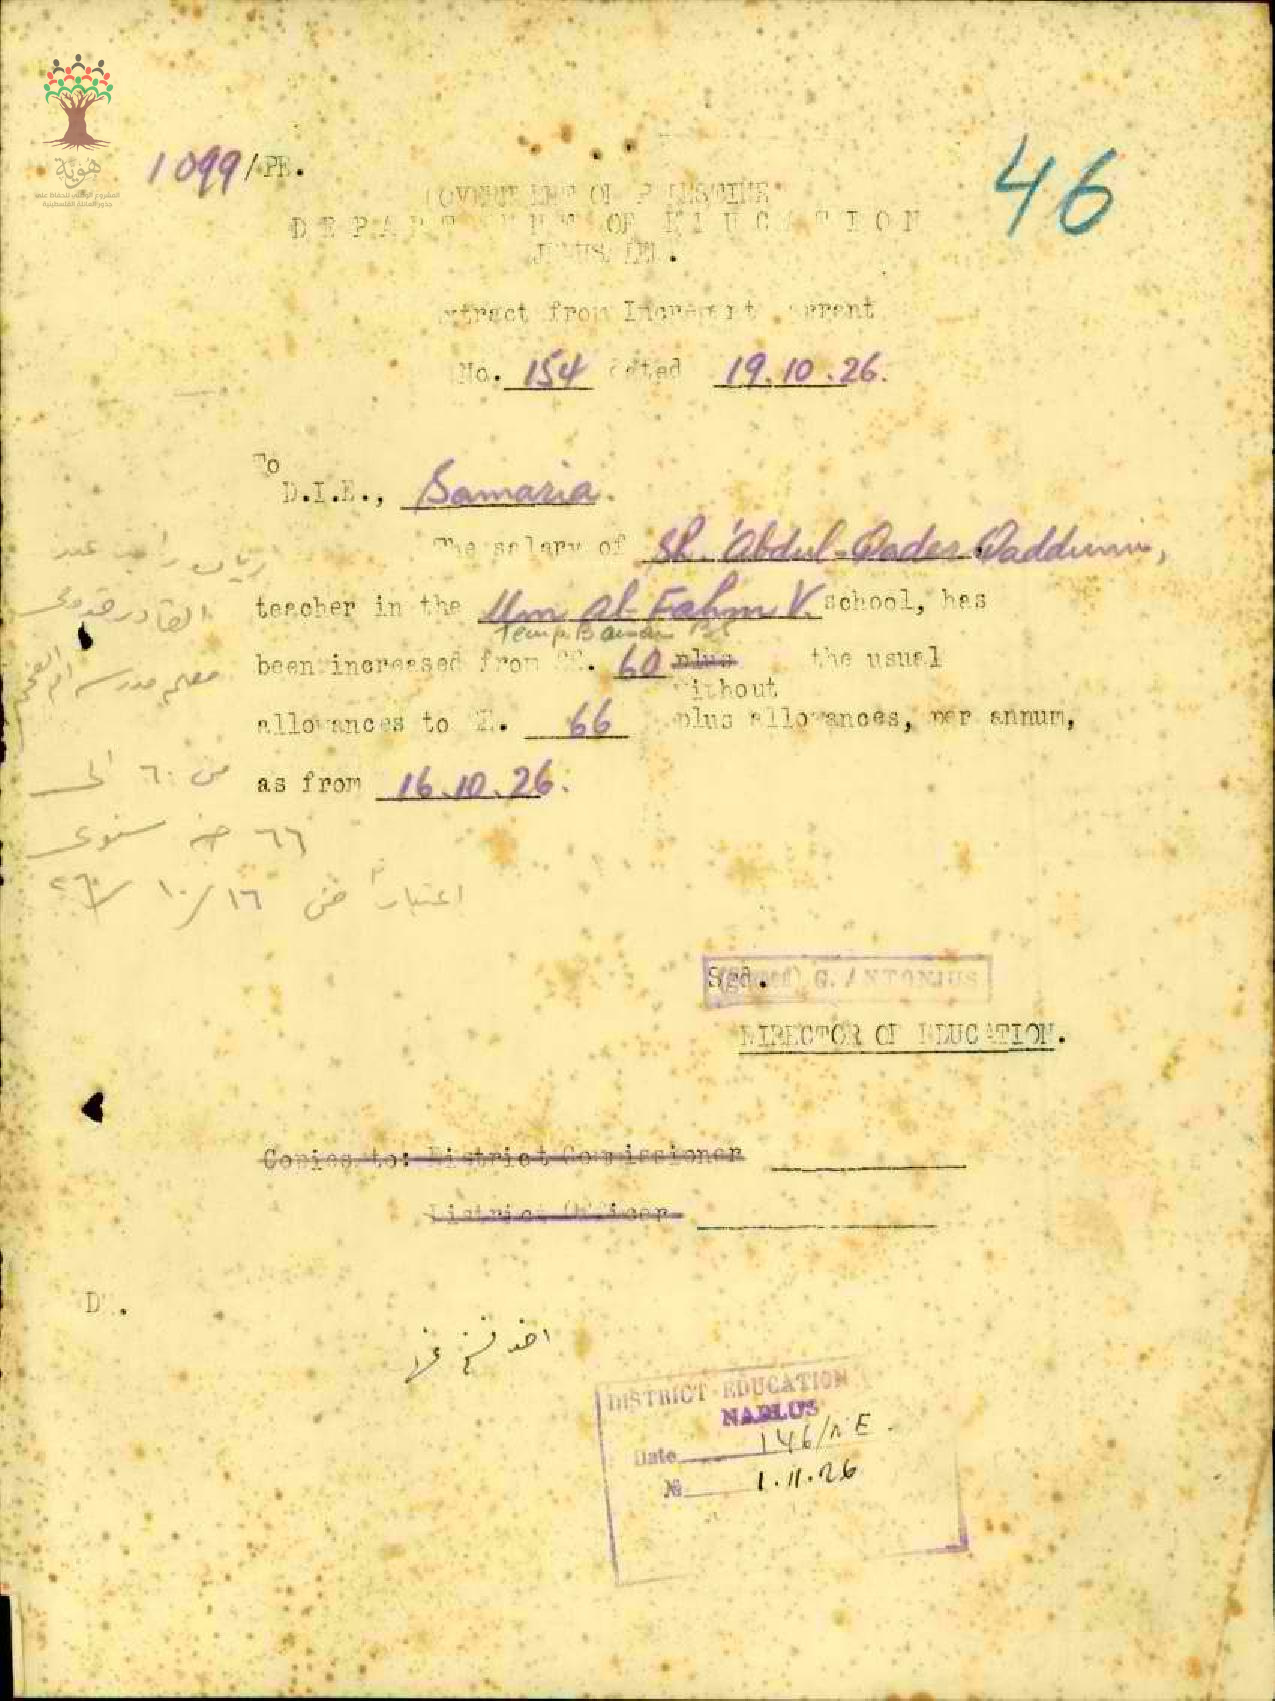 هوية
المشروع الوطني للحفاظ على
جذور العائلة الفلسطينية
1099/PE.
46
GOVERNMENT OF PALESTINE
DEPARTMENT OF EDUCATION
JERUSALEM.
Extract from Increment Warrant
No. 154 dated 19.10.26.
To
D.I.E., Samaria.
The salary of Sh. 'Abdul-Qader Qaddumi,
teacher in the Um al-Fahm V. school, has
Temp.
been increased from £E. 60 plus the usual
without
allowances to £E. 66 plus allowances, per annum,
as from 16.10.26.
زيادة راتب عبد
القادر قدومي
معلم مدرسة ام الفحم
من ٦٠ الى
٦٦ جنه سنوي
اعتباراً من ١٦/١٠/٢٦
Sgd.
(Signed) G. ANTONIUS
DIRECTOR OF EDUCATION.
Copies to: District Commissioner
District Officer
D .
DISTRICT EDUCATION
NABLUS
Date 146/NE
№ 1.11.26